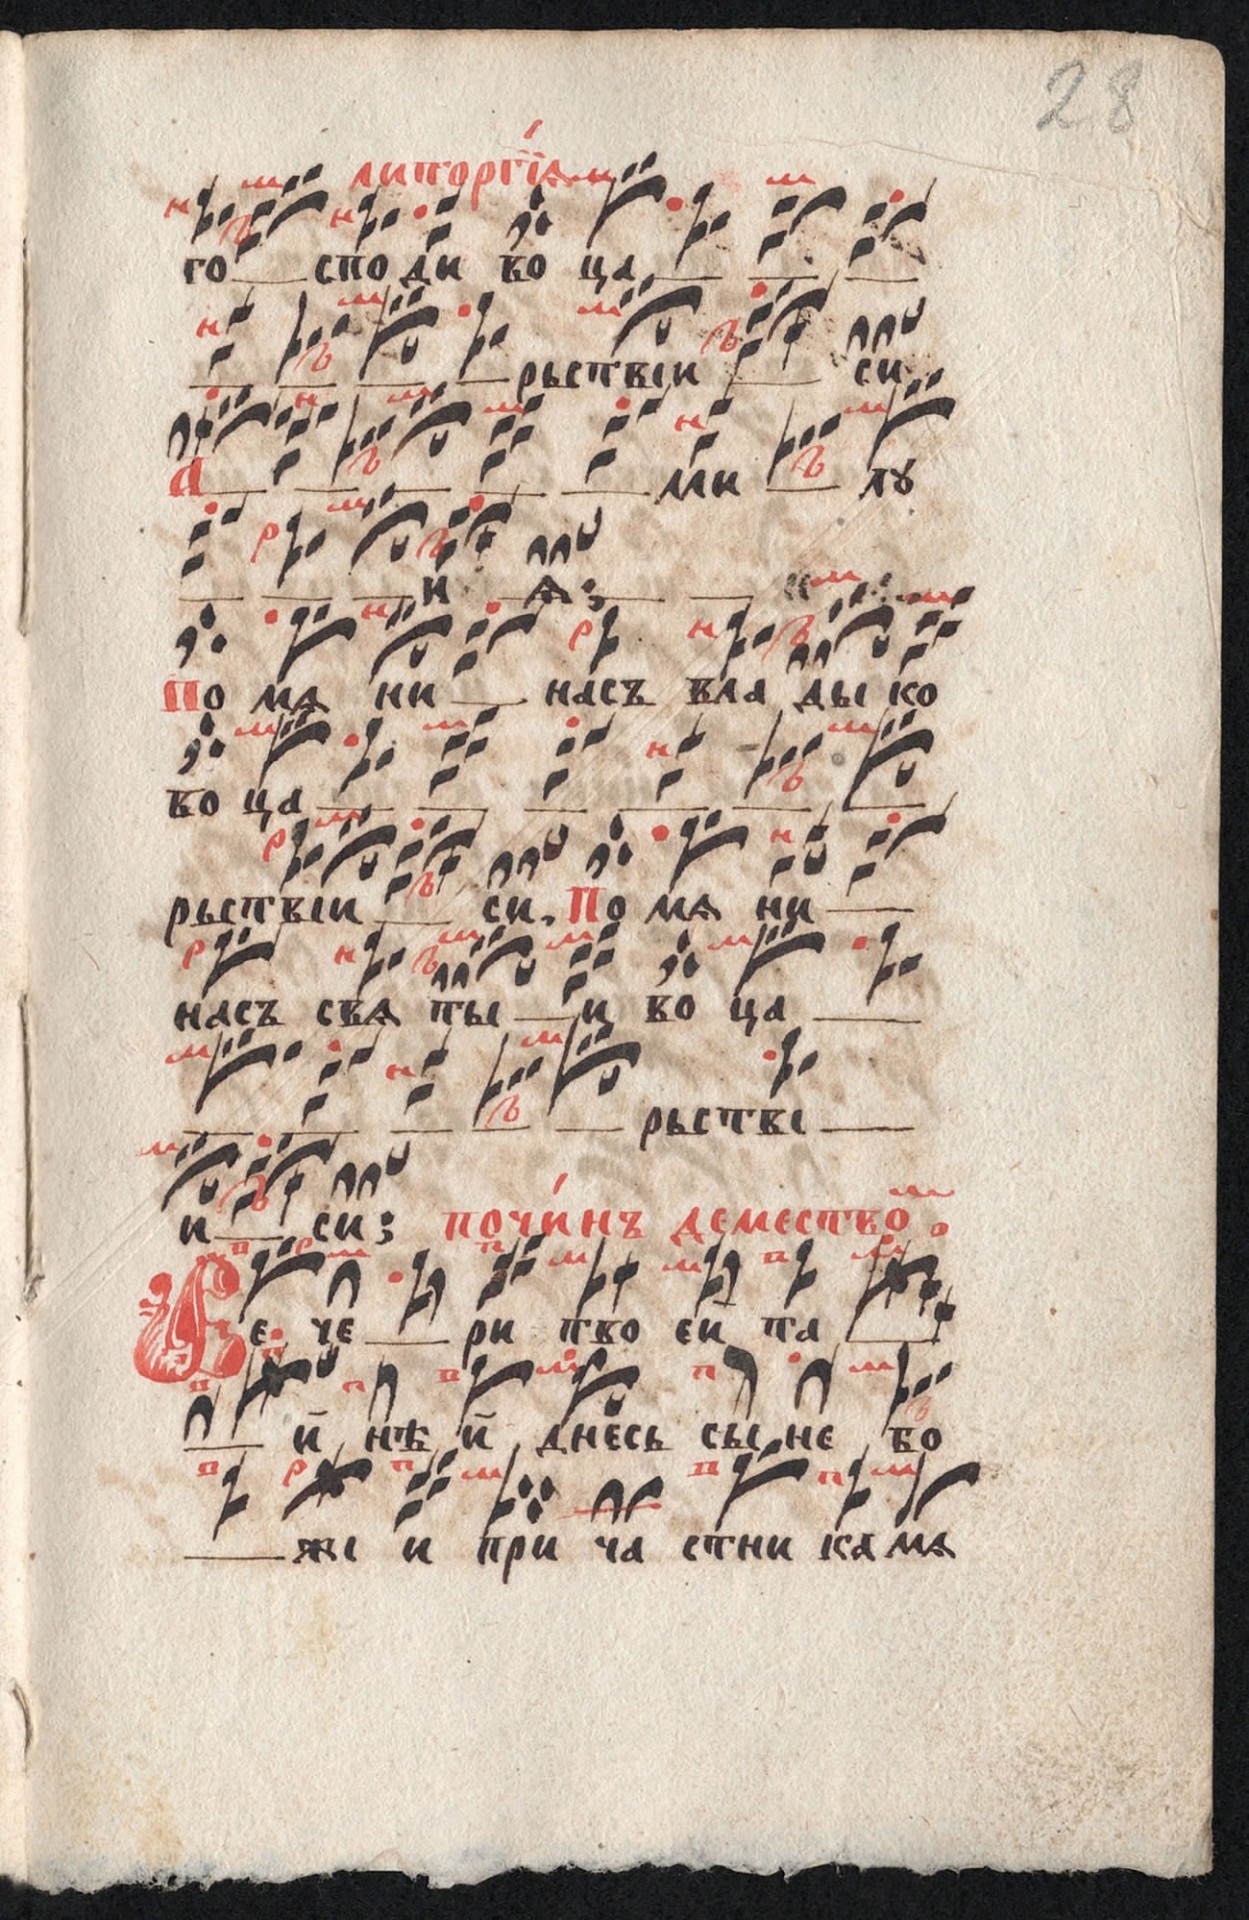 28
литоргїѧ
го споди во ца
рьствїи си
а ми лꙋ
и ѧ;
По мѧ ни насъ вла ды ко
во ца
рьствїи си. По мѧ ни
насъ свѧ ты и во ца
рьствї
и си; почи́нъ демество
че ри тво ей та
й нѣ й днесь сы не бо
жі и при ча стни ка мѧ